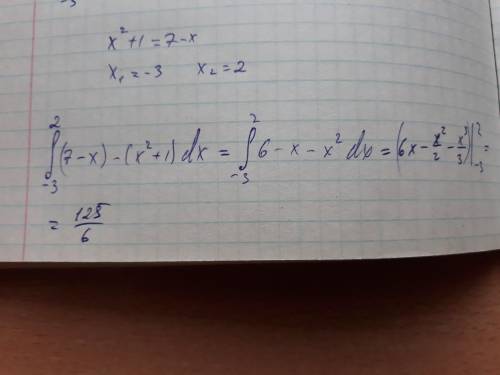 -3
x²+1=7-x
x₁=-3 x₂=2
∫₋₃²(7-x)-(x²+1)dx=∫₋₃²6-x-x²dx=(6x-x²/2-x³/3)|₋₃²=
=125/6